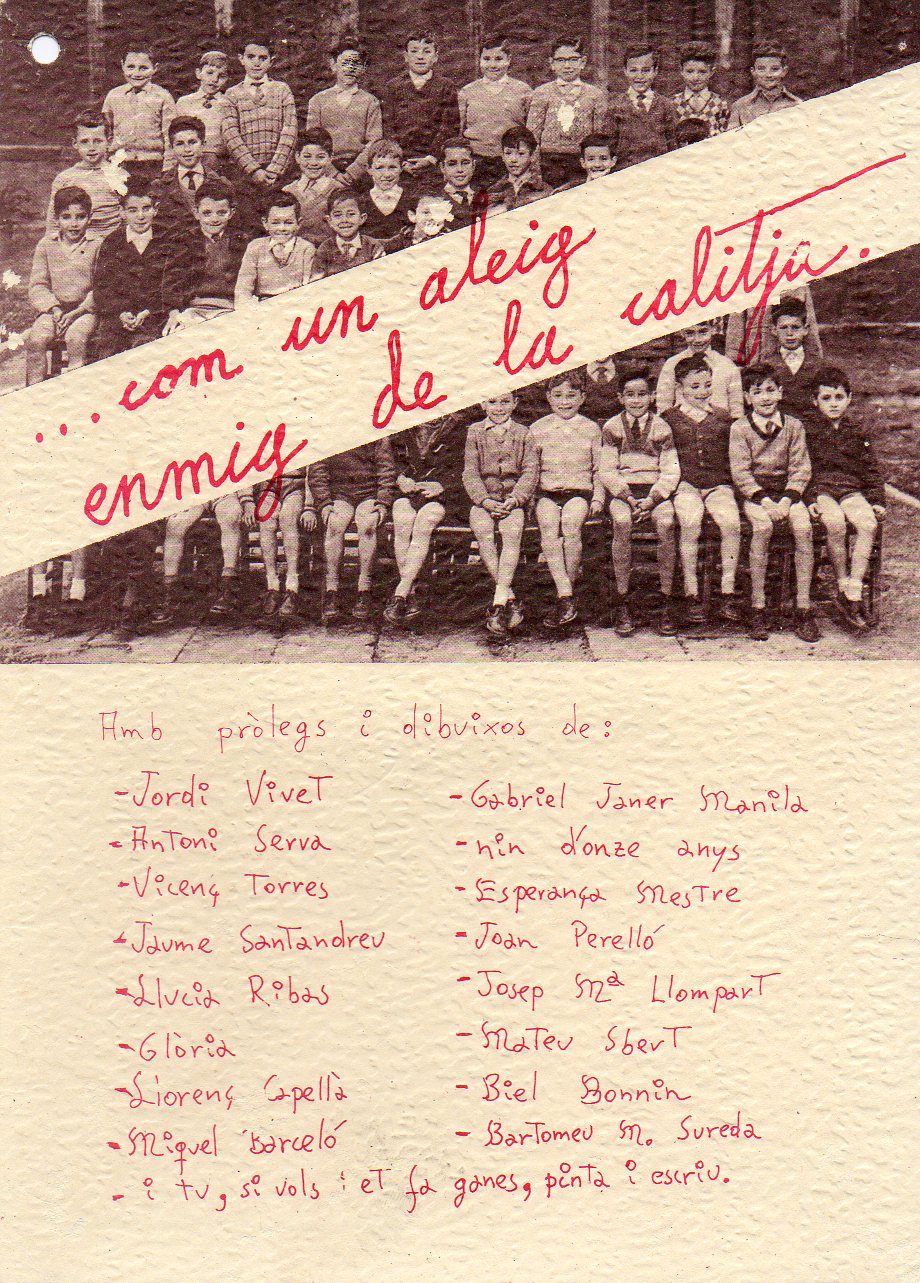 ...com un aleig
enmig de la calitja.
Amb pròlegs i dibuixos de:
- Jordi Vivet
- Antoni Serva
- Vicenç Torres
- Jaume Santandreu
- Llvcia Ribas
- Glòria
- Llorenç Capellà
- Miquel Barceló
- Gabriel Janer Manila
- nin d'onze anys
- Esperança Mestre
- Joan Perelló
- Josep Mª Llompart
- Mateu Sbert
- Biel Bonnin
- Bartomeu M. Sureda
- i tu, si vols i et fa ganes, pinta i escriu.